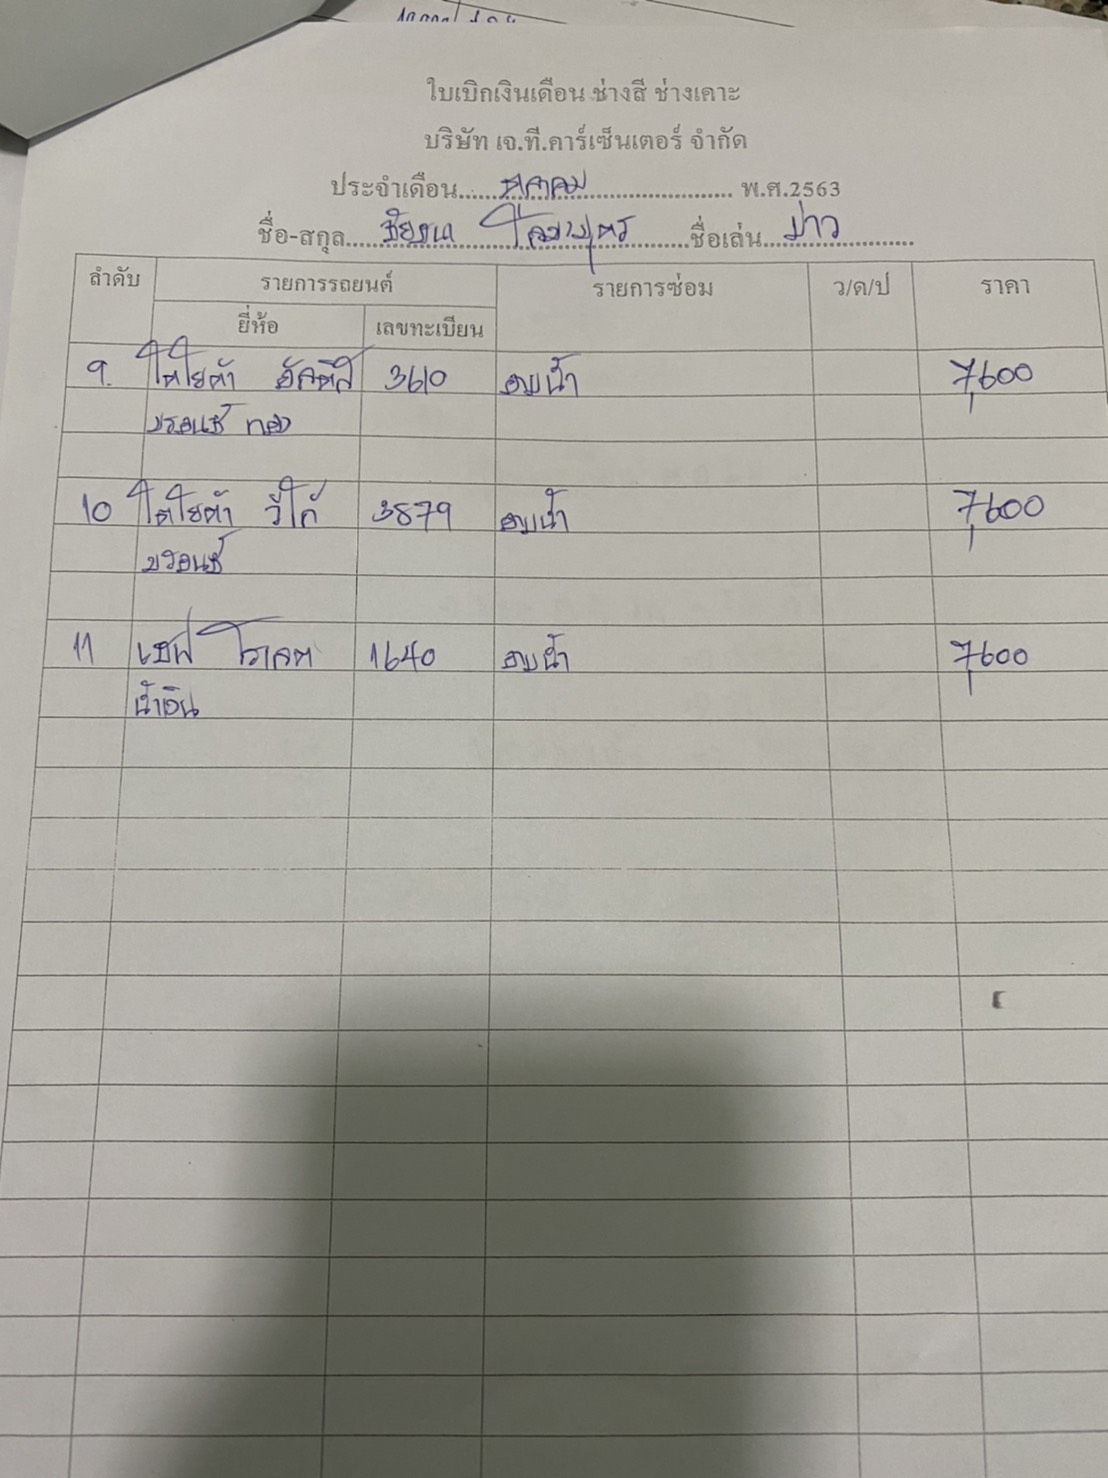 ใบเบิกเงินเดือน ช่างสี ช่างเคาะ
บริษัท เจ.ที.คาร์เซ็นเตอร์ จำกัด
ประจำเดือน......ตุลาคม........................... พ.ศ.2563
ชื่อ-สกุล..........................ชื่อเล่น...บ่าว............
ลำดับ รายการรถยนต์ รายการซ่อม ว/ด/ป ราคา
ยี่ห้อ เลขทะเบียน
9. โตโยต้า อัลติส 3610 อบน้ำ 7,600
บรอนซ์ ทอง
10 โตโยต้า วีโก้ 3879 อบน้ำ 7,600
บรอนซ์
11 เชฟโรเลต 1640 อบน้ำ 7,600
น้ำเงิน